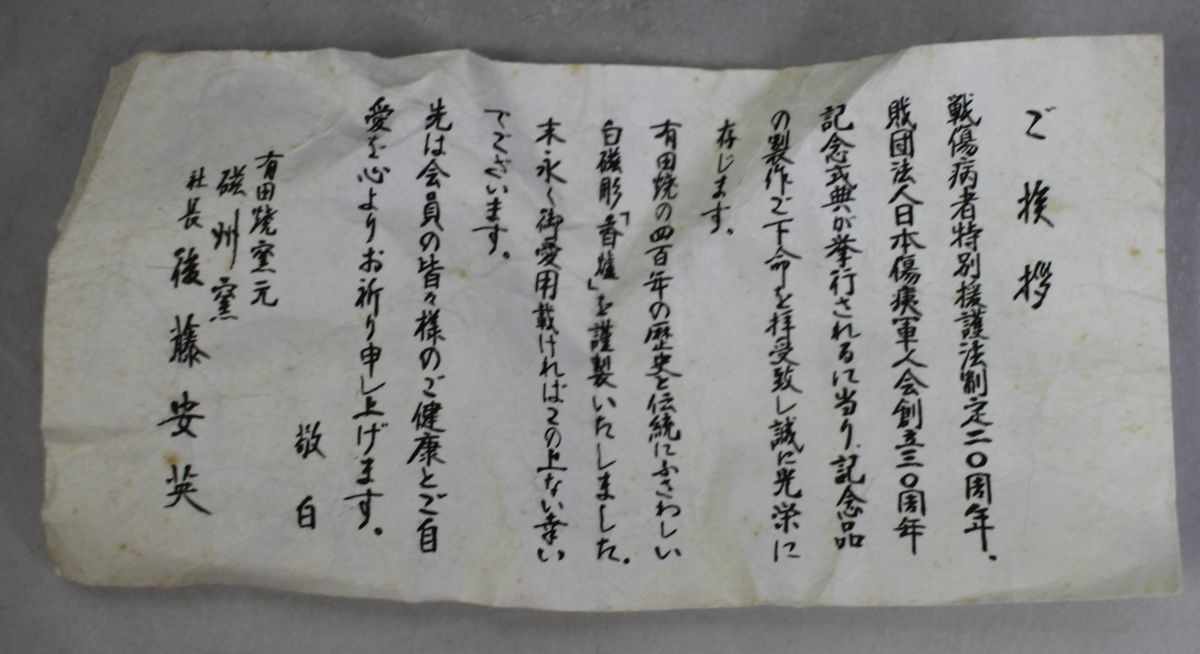 ご挨拶
戦傷病者特別援護法制定二〇周年、
財団法人日本傷痍軍人会創立三〇周年
記念式典が挙行されるに当り、記念品
の製作ご下命を拝受致し誠に光栄に
存じます。
有田焼の四百年の歴史と伝統にふさわしい
白磁彫「香爐」を謹製いたしました。
末永く御愛用載ければこの上ない幸い
でございます。
先は会員の皆々様のご健康とご自
愛を心よりお祈り申し上げます。
敬白
有田焼窯元
磁州窯
社長 後藤安英